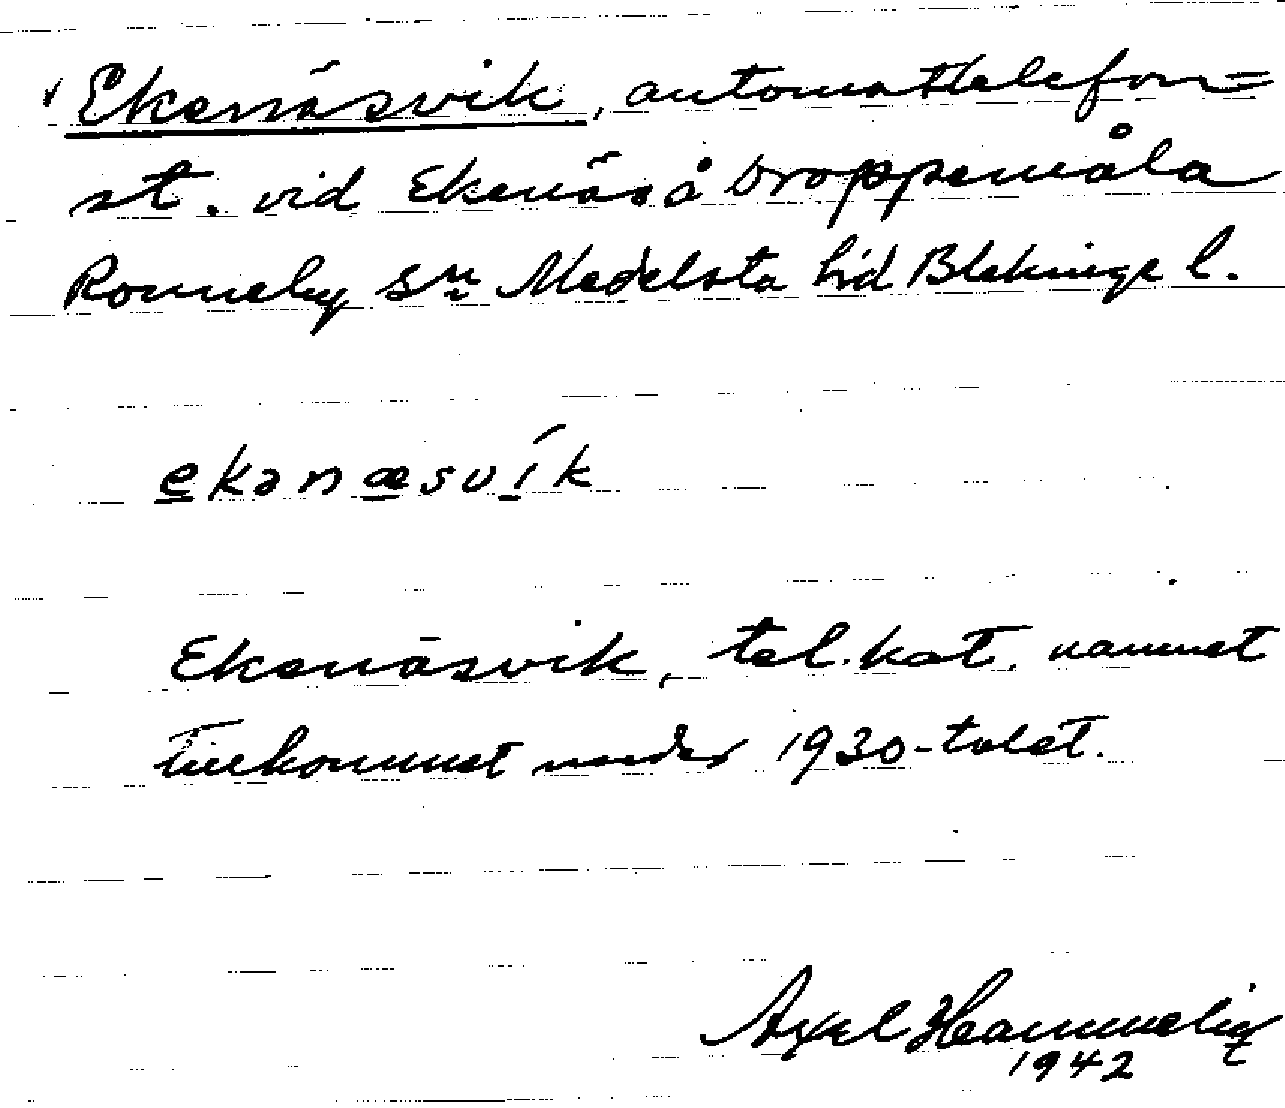 Ekenäsvik, automattelefon=
st. vid Ekenäs å Droppemåla
Ronneby Sn Medelsta hd Blekinge l.
ekənæsvík
Ekenäsvik, tel.kat. namnet
tillkommet under 1930-talet.
Axel
1942